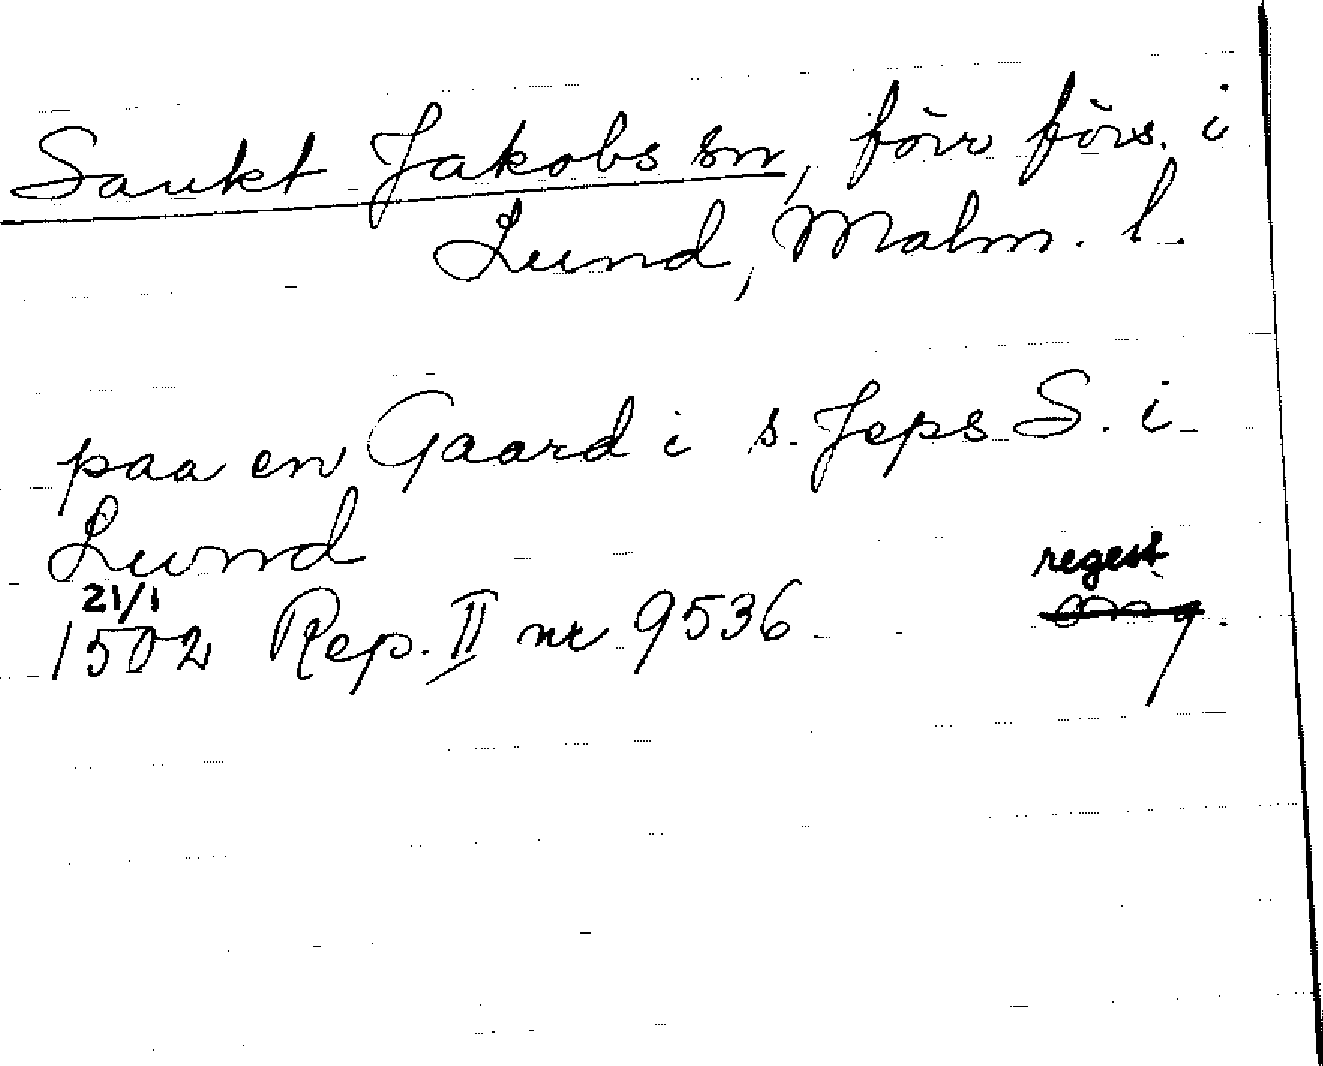 Sankt Jakobs sn, förr förs. i
Lund, Malm. l.
paa en Gaard i s. Jeps S. i
Lund
21/1
1502 Rep. II nr 9536
regest